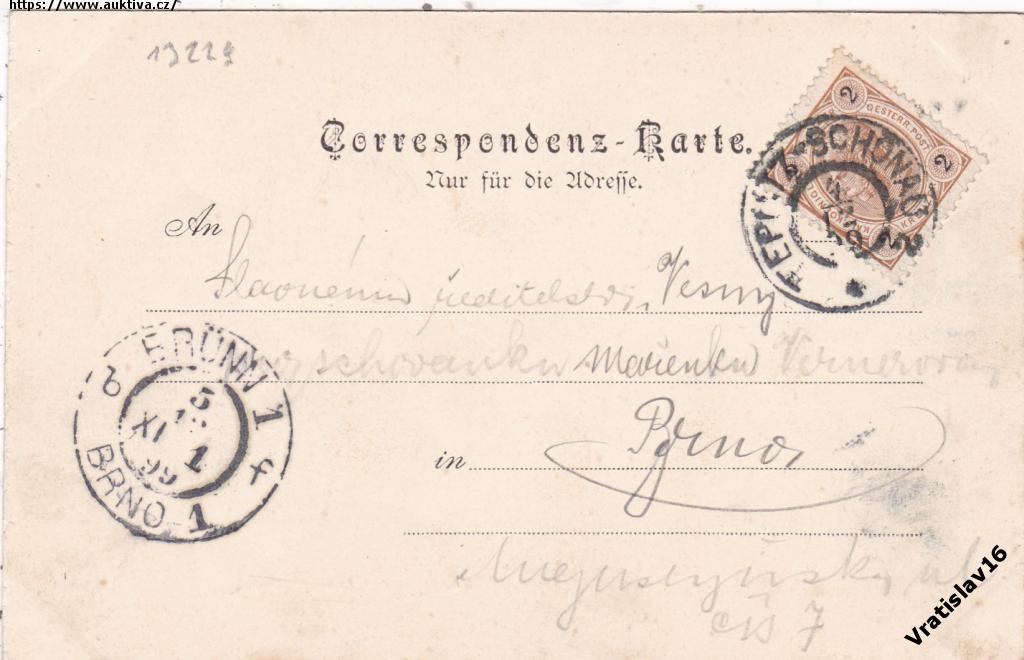 https://www.auktiva.cz/
13229
Correspondenz-Karte.
Nur für die Adresse.
2
2
OESTERR. POST
TEPLITZ-SCHÖNAU 2
An
Slavnému ředitelství Vesny
pro schovanku Mařenku Vernerovou
in Brno
BRÜNN 1
5
XI
1
99
BRNO 1
Augustýnská ul
čís 7
Vratislav16